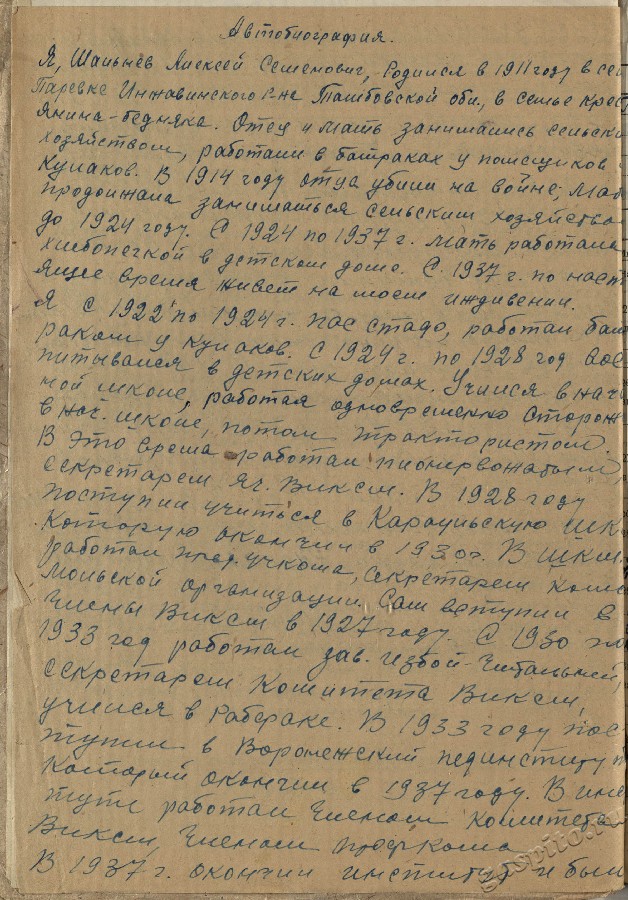 Автобиография.
Я, Шальнев Алексей Семенович, родился в 1911 году в сел
Паревке Инжавинского р-на Тамбовской обл., в семье крес
янина-бедняка. Отец и мать занимались сельски
хозяйством, работали в батраках у помещиков
кулаков. В 1914 году отца убили на войне, Мать
продолжала заниматься сельским хозяйство
до 1924 году. С 1924 по 1937 г. мать работала
хлебопечкой в детском доме. С 1937 г. по наст
ящее время живет на моем иждивении.
Я с 1922 по 1924 г. пас стадо, работал бат
раком у кулаков. С 1924 г. по 1928 год вос
питывался в детских домах. Учился в нача
ной школе, работая одновременно сторож
в нач. школе, потом трактористом.
В это время работал пионервожатым,
секретарем яч. ВЛКСМ. В 1928 году
поступил учиться в Караульскую ШК
которую окончил в 1930 г. В ШКМ
работал пред. учкома, секретарем комсо
мольской организации. Сам вступил в
члены ВЛКСМ в 1927 году. С 1930 по
1933 год работал зав. избой-читальней,
секретарем комитета ВЛКСМ,
учился в рабфаке. В 1933 году пос
тупил в Воронежский пединститут
который окончил в 1937 году. В инс
туте работал членом комитета
ВЛКСМ, членом профкома
В 1937 г. окончил институт и был
gwvito.ru